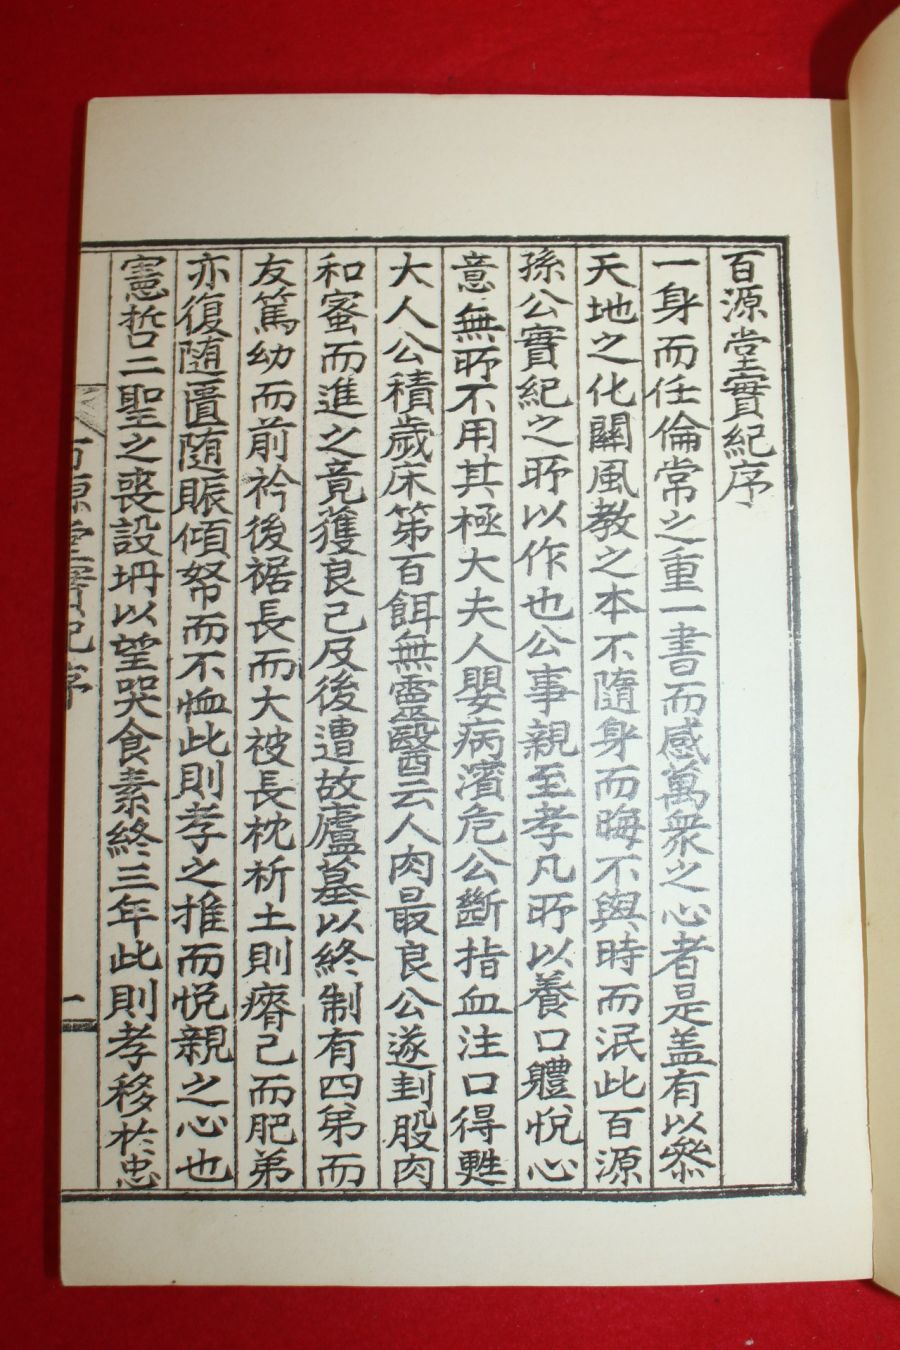 百源堂實紀序
一身而任倫常之重一書而感萬衆之心者是盖有以叅
天地之化關風教之本不隨身而晦不與時而泯此百源
孫公實紀之所以作也公事親至孝凡所以養口軆悅心
意無所不用其極大夫人嬰病濱危公斷指血注口得甦
大人公積歲床第百餌無靈醫云人肉最良公遂刲股肉
和蜜而進之竟獲良已及後遭故廬墓以終制有四弟而
友篤幼而前衿後裾長而大被長枕析土則瘠己而肥弟
亦復随匱随賑傾帑而不恤此則孝之推而悅親之心也
憲哲二聖之喪設坍以望哭食素終三年此則孝移於忠
百源堂實紀序
一